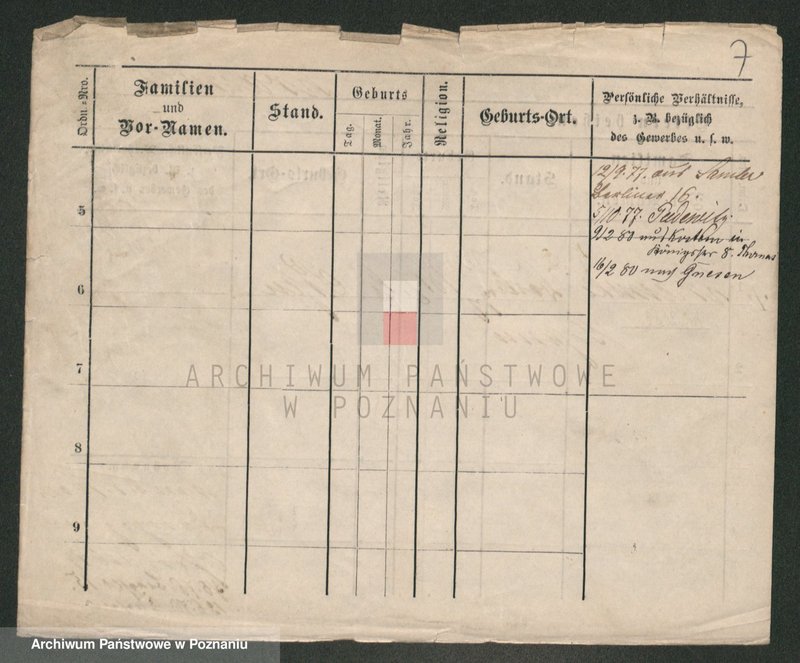 7
Ordn.-Nro.
Familien
und
Vor-Namen.
Stand.
Geburts
Tag.
Monat.
Jahr.
Religion.
Geburts-Ort.
Persönliche Verhältnisse,
z. B. bezüglich
des Gewerbes u. s. w.
12/9.77. aus Samter
Berliner 16.
5/10.77. Pudewitz.
9/2 80 aus in
Königstr 8.
16/2 80 nach Gnesen
5
6
7
8
9
ARCHIWUM PAŃSTWOWE
W POZNANIU
Archiwum Państwowe w Poznaniu